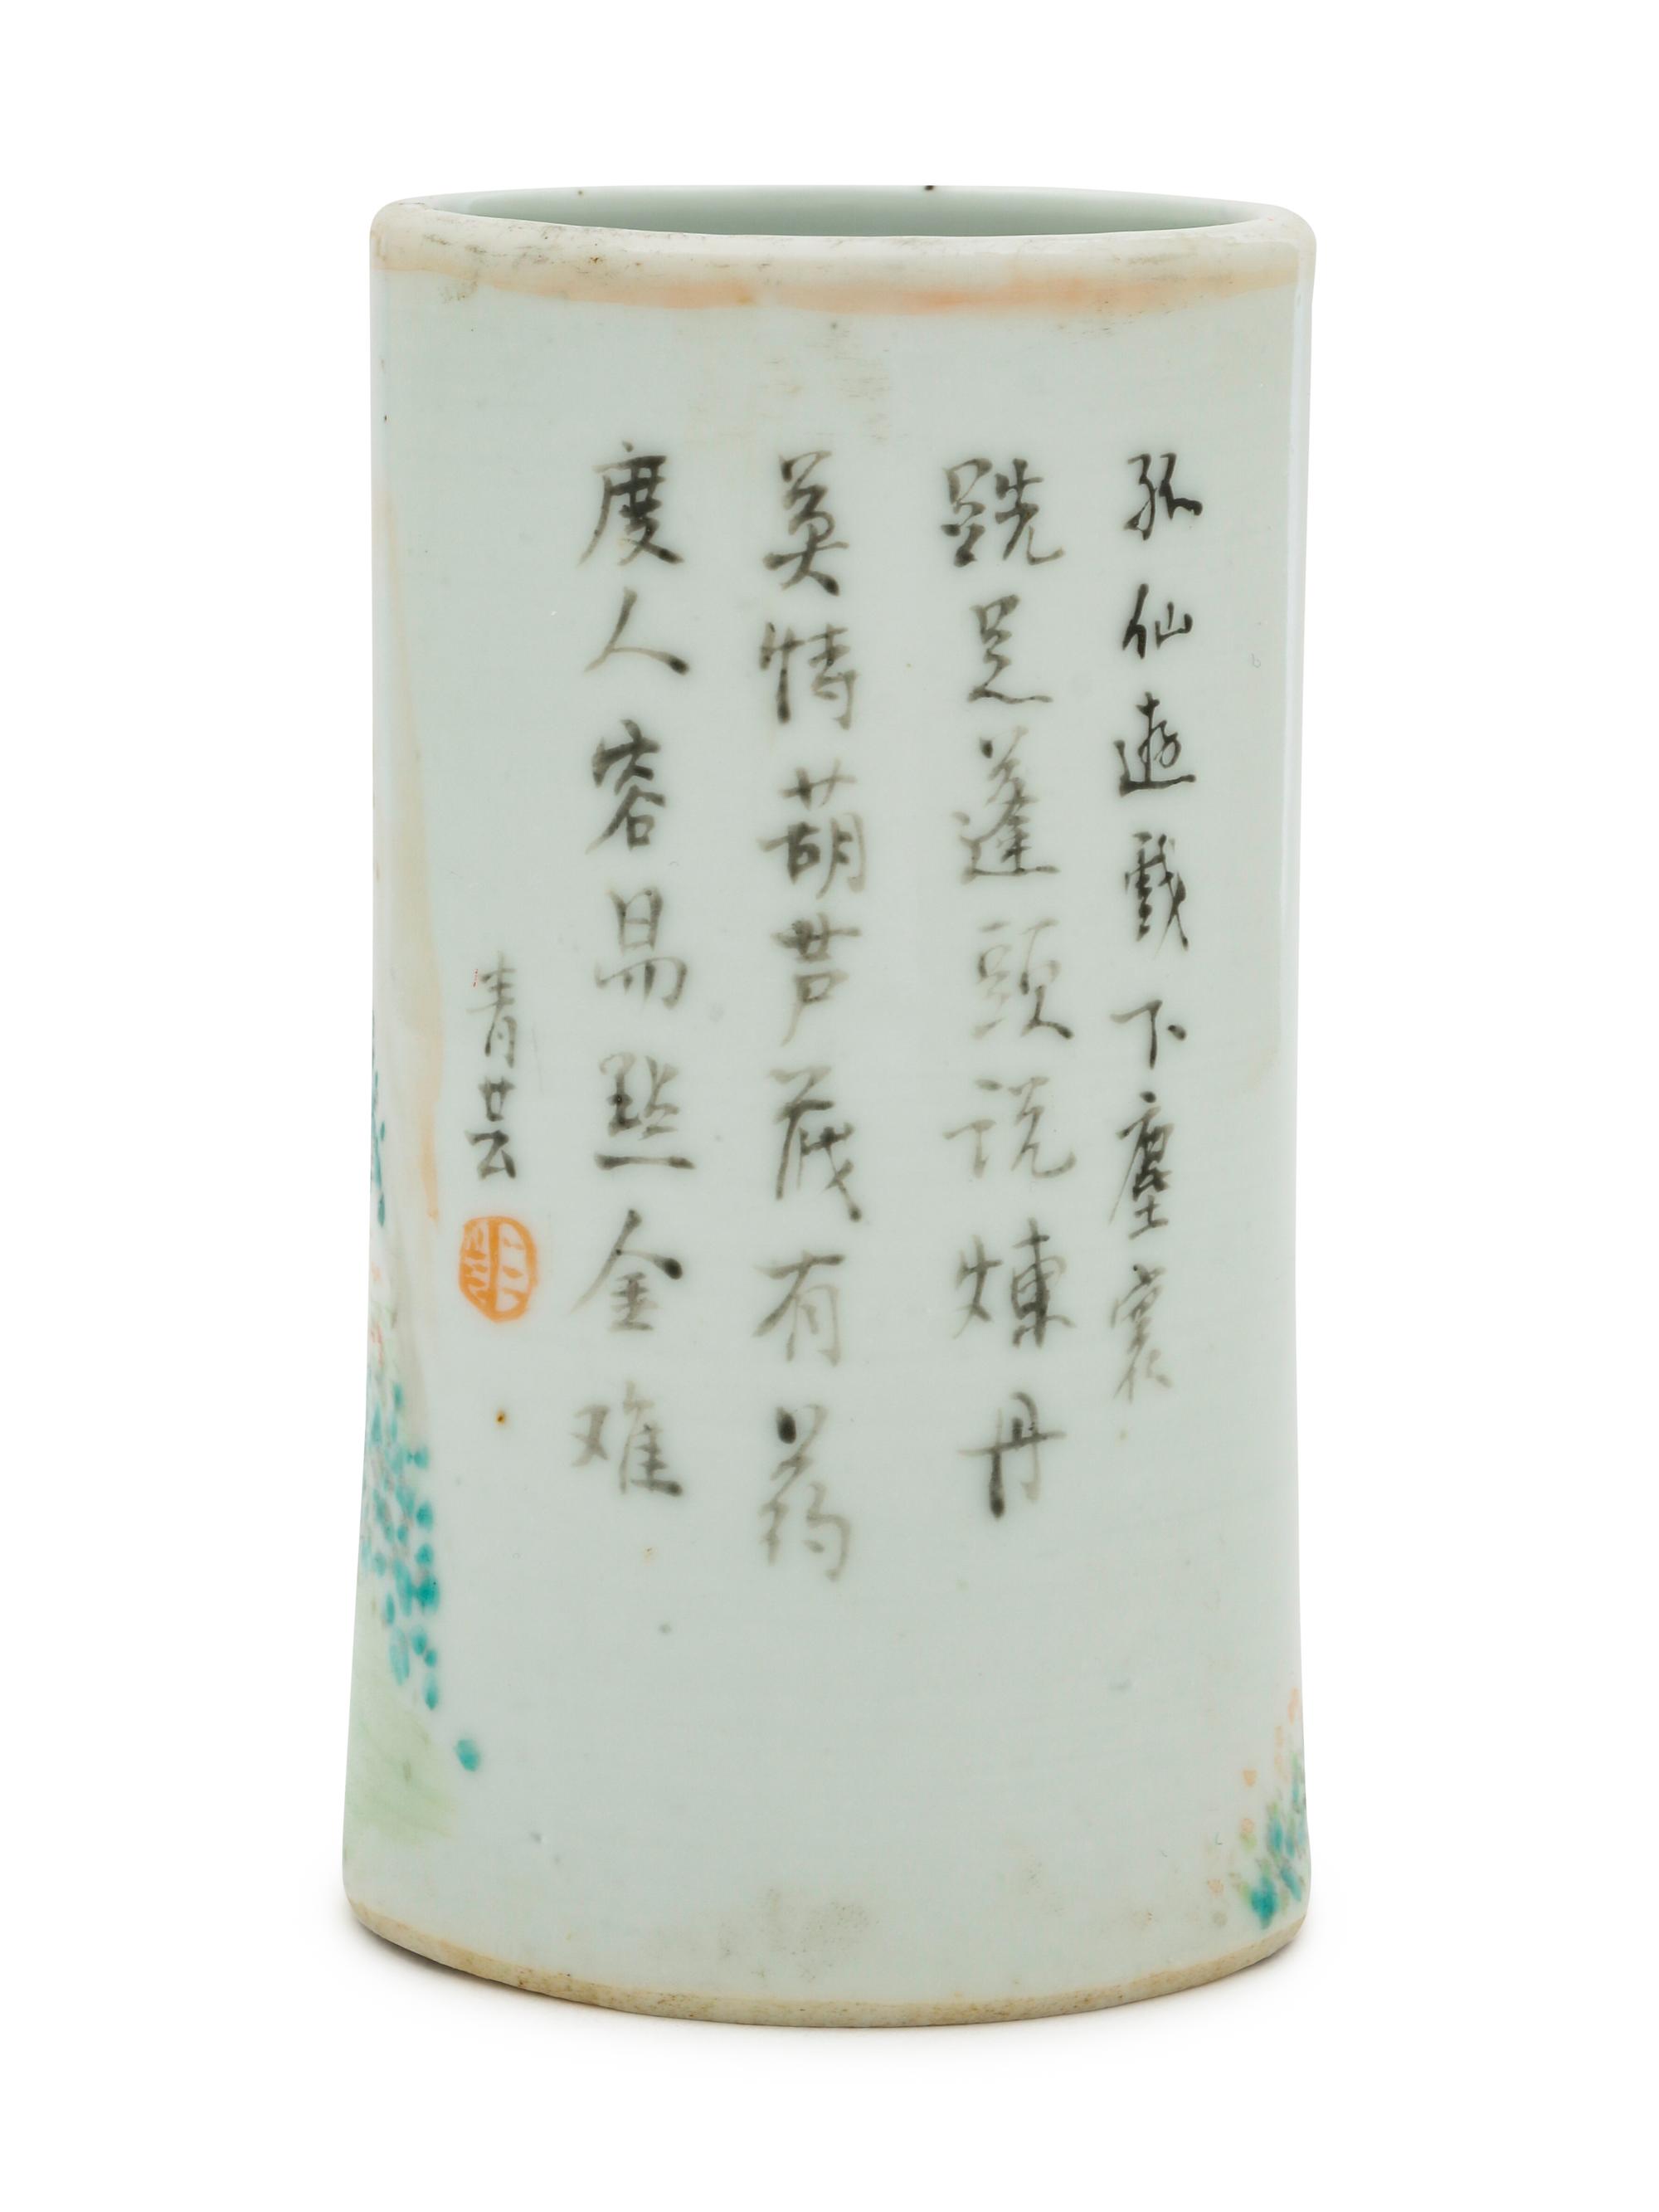 孤仙遊戲下塵寰
跣足蓬頭説煉丹
莫恃葫芦藏有药
度人容易點金难
青芸